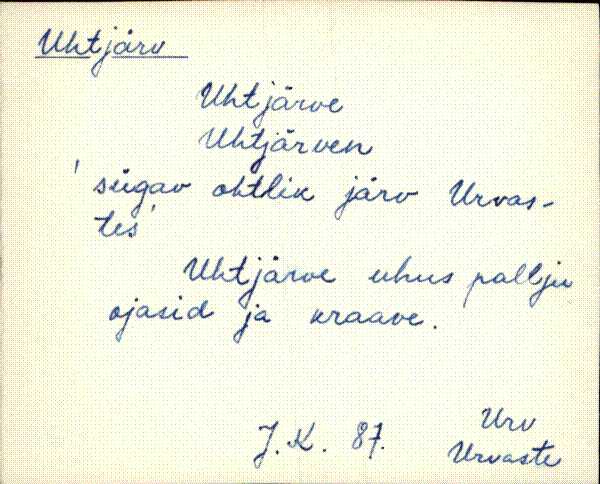 Uhtjärv
Uhtjärve
Uhtjärven
'sügav ohtlik järv Urvas-
tes'
Uhtjärve uhus pallju
ojasid ja kraave.
Urv
J.K. 87.
Urvaste